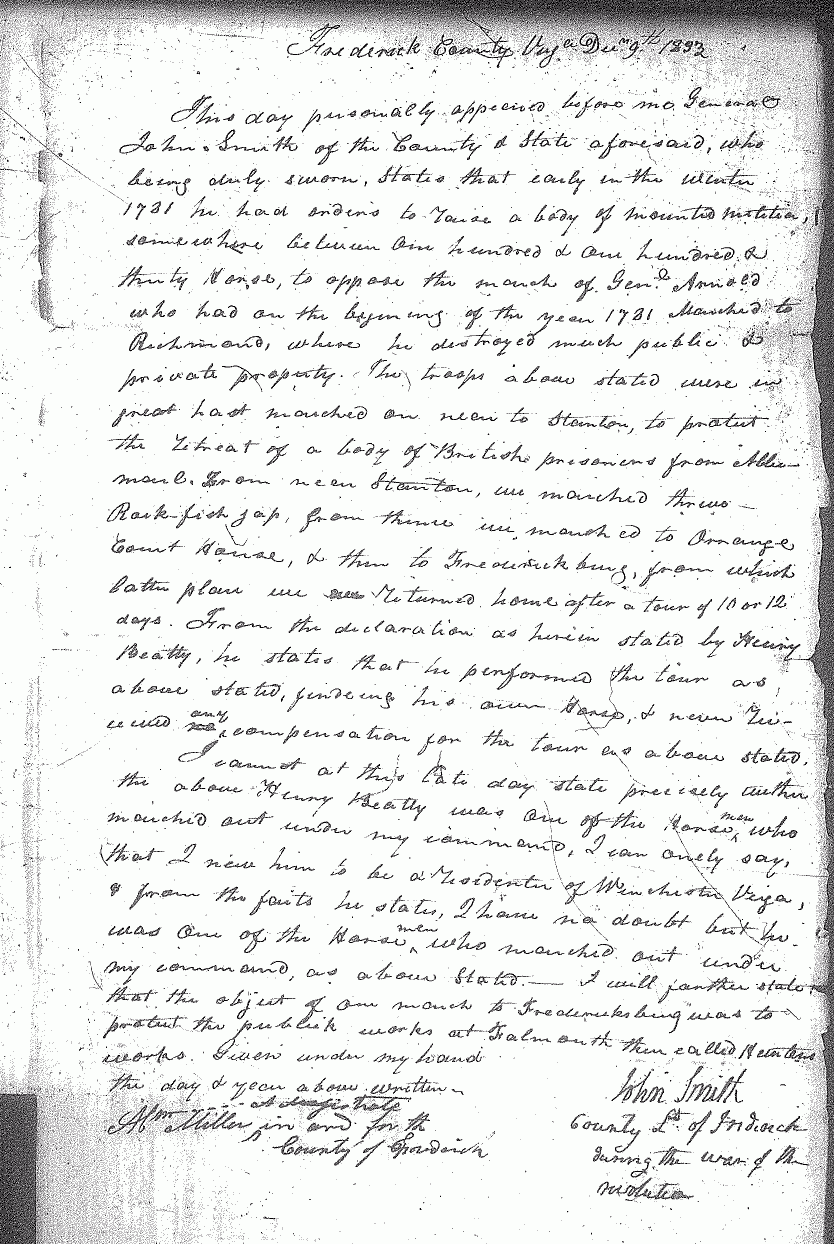 Frederick County Virga Decr 9th 1832
This day personally appeared before me General
John Smith of the County & State aforesaid, who
being duly sworn, States that early in the winter
1781 he had orders to raise a body of mounted militia,
somewhere between One hundred & one hundred &
thirty Horse, to oppose the march of Genl Arnold
who had on the begining of the year 1781 Marched to
Richmond, where he destroyed much public &
private property. The troops above stated were in
great hast marched on near to Stanton, to protect
the retreat of a body of British prisoners from Albe-
marle. From near Stanton, we marched threw
Rock-fish gap, from thence we marched to Orrange
Court House, & then to Fredericksburg, from which
latter place we returned home after a tour of 10 or 12
days. From the declaration as herein stated by Henry
Beatty, he states that he performed the tour as
above stated, findeing his own Horse, & never re-
ceived any compensation for the tour as above stated.
I cannot at this late day state precisely wether
the above Henry Beatty was one of the Horse men who
marched out under my command, I can onely say,
that I new him to be a resident of Winchester Virga,
& from the facts he states, I have no doubt but he
was One of the Horse men who marched out under
my command, as above Stated. — I will farther state
that the object of our march to Fredericksburg was to
protect the publick works at Falmouth then called Hunters
works. Given under my hand
the day & year above written
John Smith
County Lt of Frederick
during the war of the
revolution
A magistrate
Abm Miller in and for th
County of Frederick